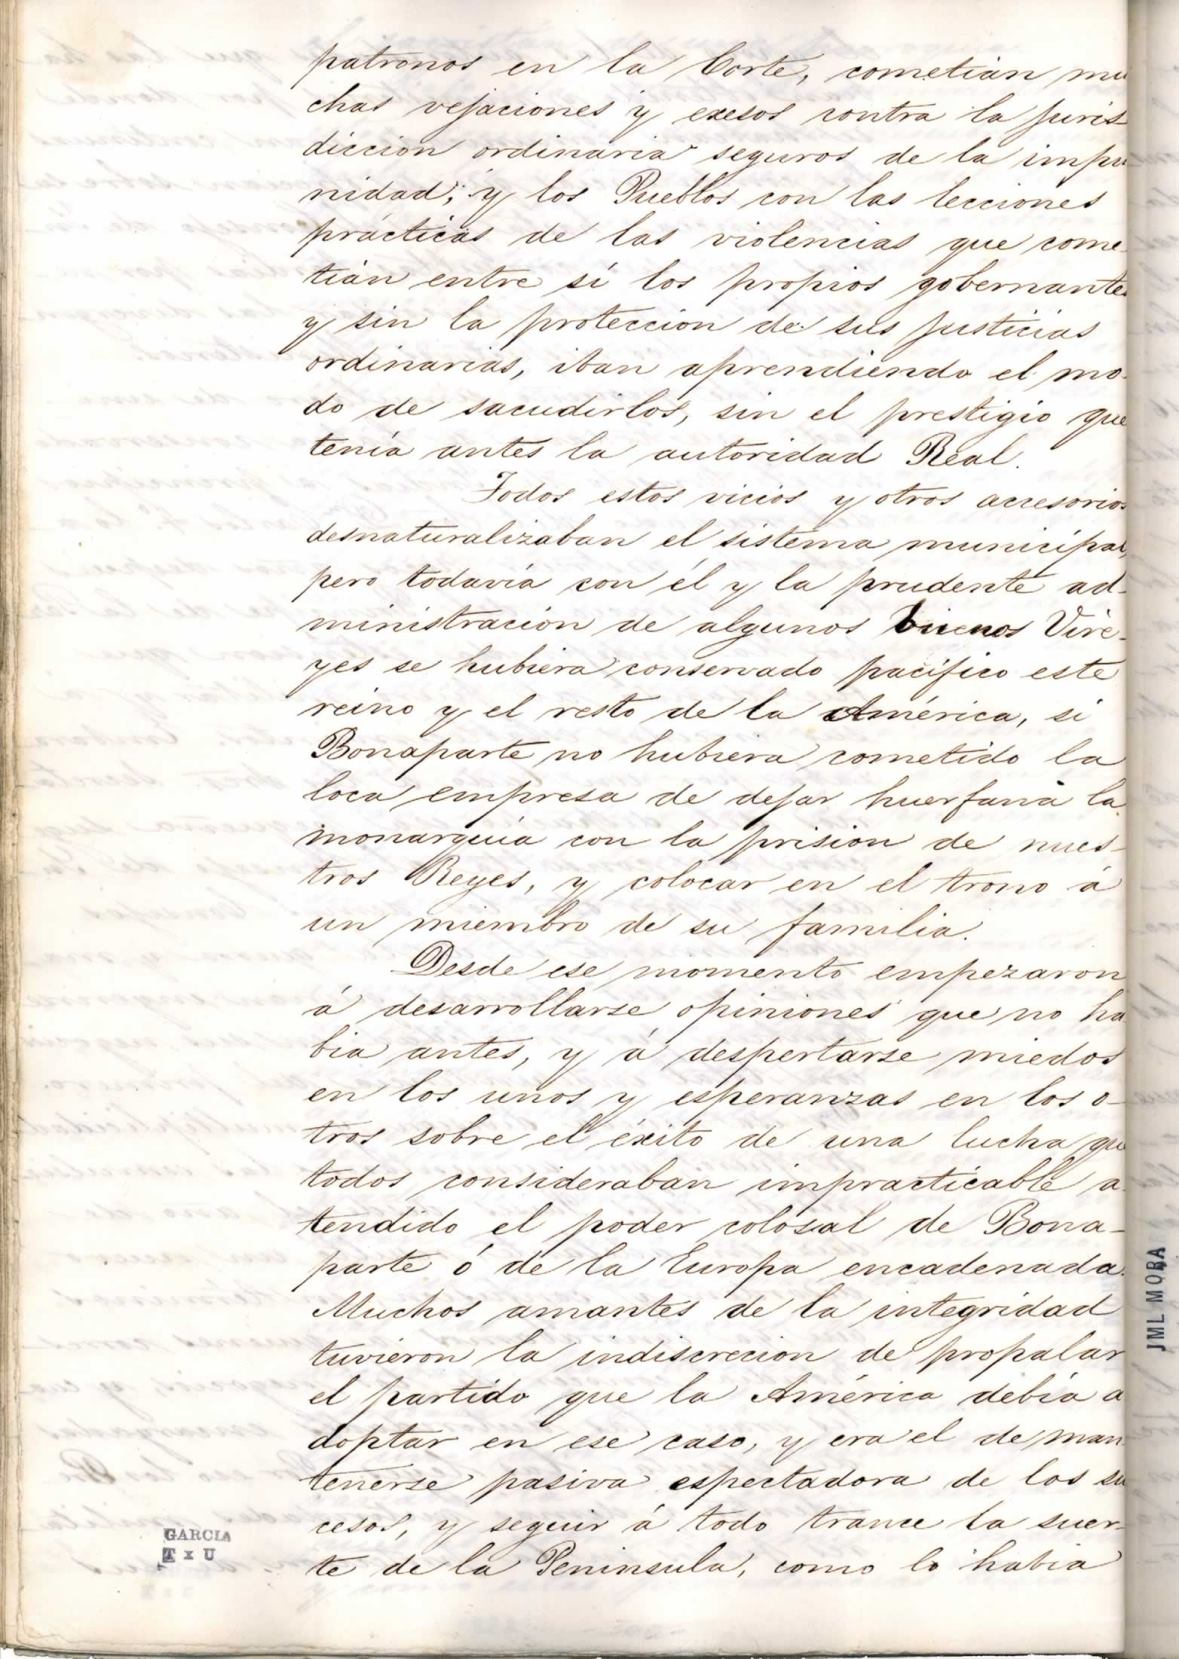 patronos en la Corte, cometian mu
chas vejaciones y exesos contra la juris
diccion ordinaria seguros de la impu
nidad; y los Pueblos con las lecciones
prácticas de las violencias que come-
tián entre sí los propios gobernantes
y sin la proteccion de sus justicias
ordinarias, iban aprendiendo el mo-
do de sacudirlos, sin el prestigio que
tenía antes la autoridad Real.
Todos estos vicios y otros accesorios
desnaturalizaban el sistema municipal,
pero todavía con él y la prudente ad-
ministración de algunos buenos Vire-
yes se hubiera conservado pacífico este
reino y el resto de la América, si
Bonaparte no hubiera cometido la
loca empresa de dejar huerfana la
monarquía con la prision de nues-
tros Reyes, y colocar en el trono á
un miembro de su familia.
Desde ese momento empezaron
á desarrollarse opiniones que no ha
bia antes, y á despertarse miedos
en los unos y esperanzas en los o-
tros sobre el éxito de una lucha que
todos consideraban impracticable a-
tendido el poder colosal de Bona-
parte ó de la Europa encadenada.
Muchos amantes de la integridad
tuvieron la indiscrecion de propalar
el partido que la América debía a
doptar en ese caso, y era el de man
tenerse pasiva espectadora de los su
cesos, y seguir á todo trance la suer-
te de la Peninsula, como lo habia
GARCIA
T x U
JML MORA